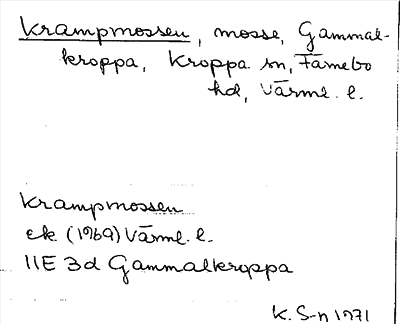 Krampmossen, mosse, Gammal-
kroppa, Kroppa sn, Färnebo
hd, Värml. l.
Krampmossen
ek. (1969) Värml. l.
11E 3d Gammalkroppa
K. S-n 1971